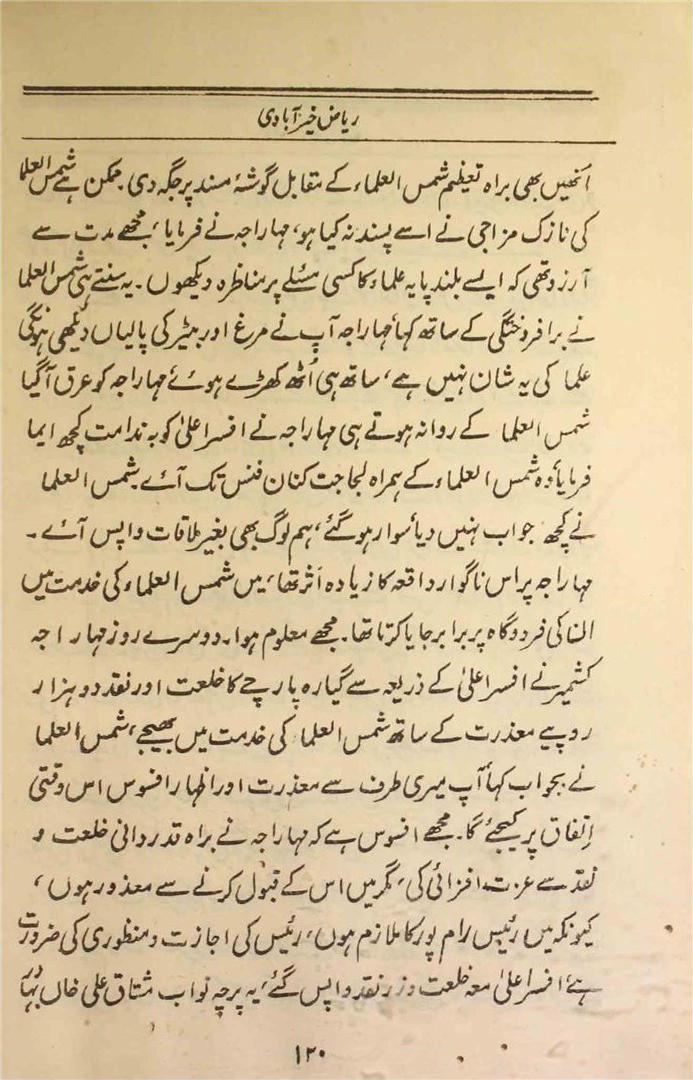 ریاض خیرآبادی
اُنھیں بھی براہ تعظیم شمس العلماء کے مقابل گوشۂ مسند پر جگہ دی ممکن ہے شمس العلما
کی نازک مزاجی نے اسے پسند نہ کیا ہو، مہاراجہ نے فرمایا، مجھے مدت سے
آرزو تھی کہ ایسے بلند پایہ علماء کا کسی مسئلے پر مناظرہ دیکھوں۔ یہ سنتے ہی شمس العلما
نے برافروختگی کے ساتھ کہا مہاراجہ آپ نے مرغ اور بٹیر کی پالیاں دیکھی ہونگی
علما کی یہ شان نہیں ہے، ساتھ ہی اُٹھ کھڑے ہوئے مہاراجہ کو عرق آگیا
شمس العلما کے روانہ ہوتے ہی مہاراجہ نے افسر اعلیٰ کو بہ ندامت کچھ ایما
فرمایا وہ شمس العلماء کے ہمراہ لجاجت کنان فنس تک آئے شمس العلما
نے کچھ جواب نہیں دیا سوار ہوگئے، ہم لوگ بھی بغیر ملاقات واپس آئے۔
مہاراجہ پر اس ناگوار واقعہ کا زیادہ اثر تھا، میں شمس العلماء کی خدمت میں
انکی فرودگاہ پر برابر جایا کرتا تھا۔ مجھے معلوم ہوا۔ دوسرے روز مہاراجہ
کشمیر نے افسر اعلیٰ کے ذریعہ سے گیارہ پارچے کا خلعت اور نقد دو ہزار
روپیے معذرت کے ساتھ شمس العلماء کی خدمت میں بھیجے، شمس العلما
نے بجواب کہا آپ میری طرف سے معذرت اور اظہار افسوس اس وقتی
اِتفاق پر کیجئے گا۔ مجھے افسوس ہے کہ مہاراجہ نے براہ قدردانی خلعت و
نقد سے عزت افزائی کی، مگر میں اس کے قبول کرنے سے معذور ہوں،
کیونکہ میں رئیس رام پور کا ملازم ہوں، رئیس کی اجازت و منظوری کی ضرورت
ہے، افسر اعلیٰ معہ خلعت و زر نقد واپس گئے، یہ پرچہ نواب مشتاق علی خاں بہا
۱۲۰